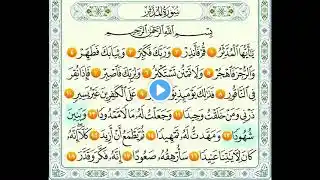 سورة المدثر
بسم الله الرحمن الرحيم
يا أيها المدثر ١ قم فأنذر ٢ وربك فكبر ٣ وثيابك فطهر ٤
والرجز فاهجر ٥ ولا تمنن تستكثر ٦ ولربك فاصبر ٧ فإذا نقر
في الناقور ٨ فذلك يومئذ يوم عسير ٩ على الكافرين غير يسير ١٠
ذرني ومن خلقت وحيدا ١١ وجعلت له مالا ممدودا ١٢ وبنين
شهودا ١٣ ومهدت له تمهيدا ١٤ ثم يطمع أن أزيد ١٥ كلا إنه
كان لآياتنا عنيدا ١٦ سأرهقه صعودا ١٧ إنه فكر وقدر ١٨